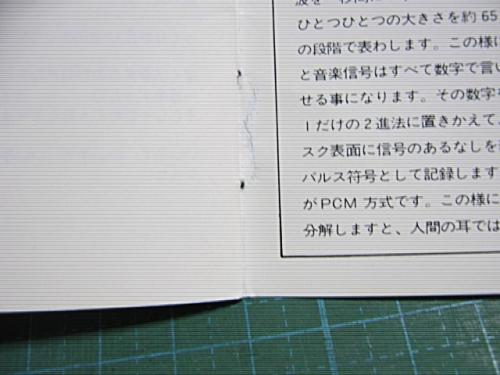 ひとつひとつの大きさを約 65
の段階で表わします。この様に
と音楽信号はすべて数字で言い
せる事になります。その数字を
1だけの2進法に置きかえて、
スク表面に信号のあるなしを
パルス符号として記録します
がPCM 方式です。この様に
分解しますと、人間の耳では